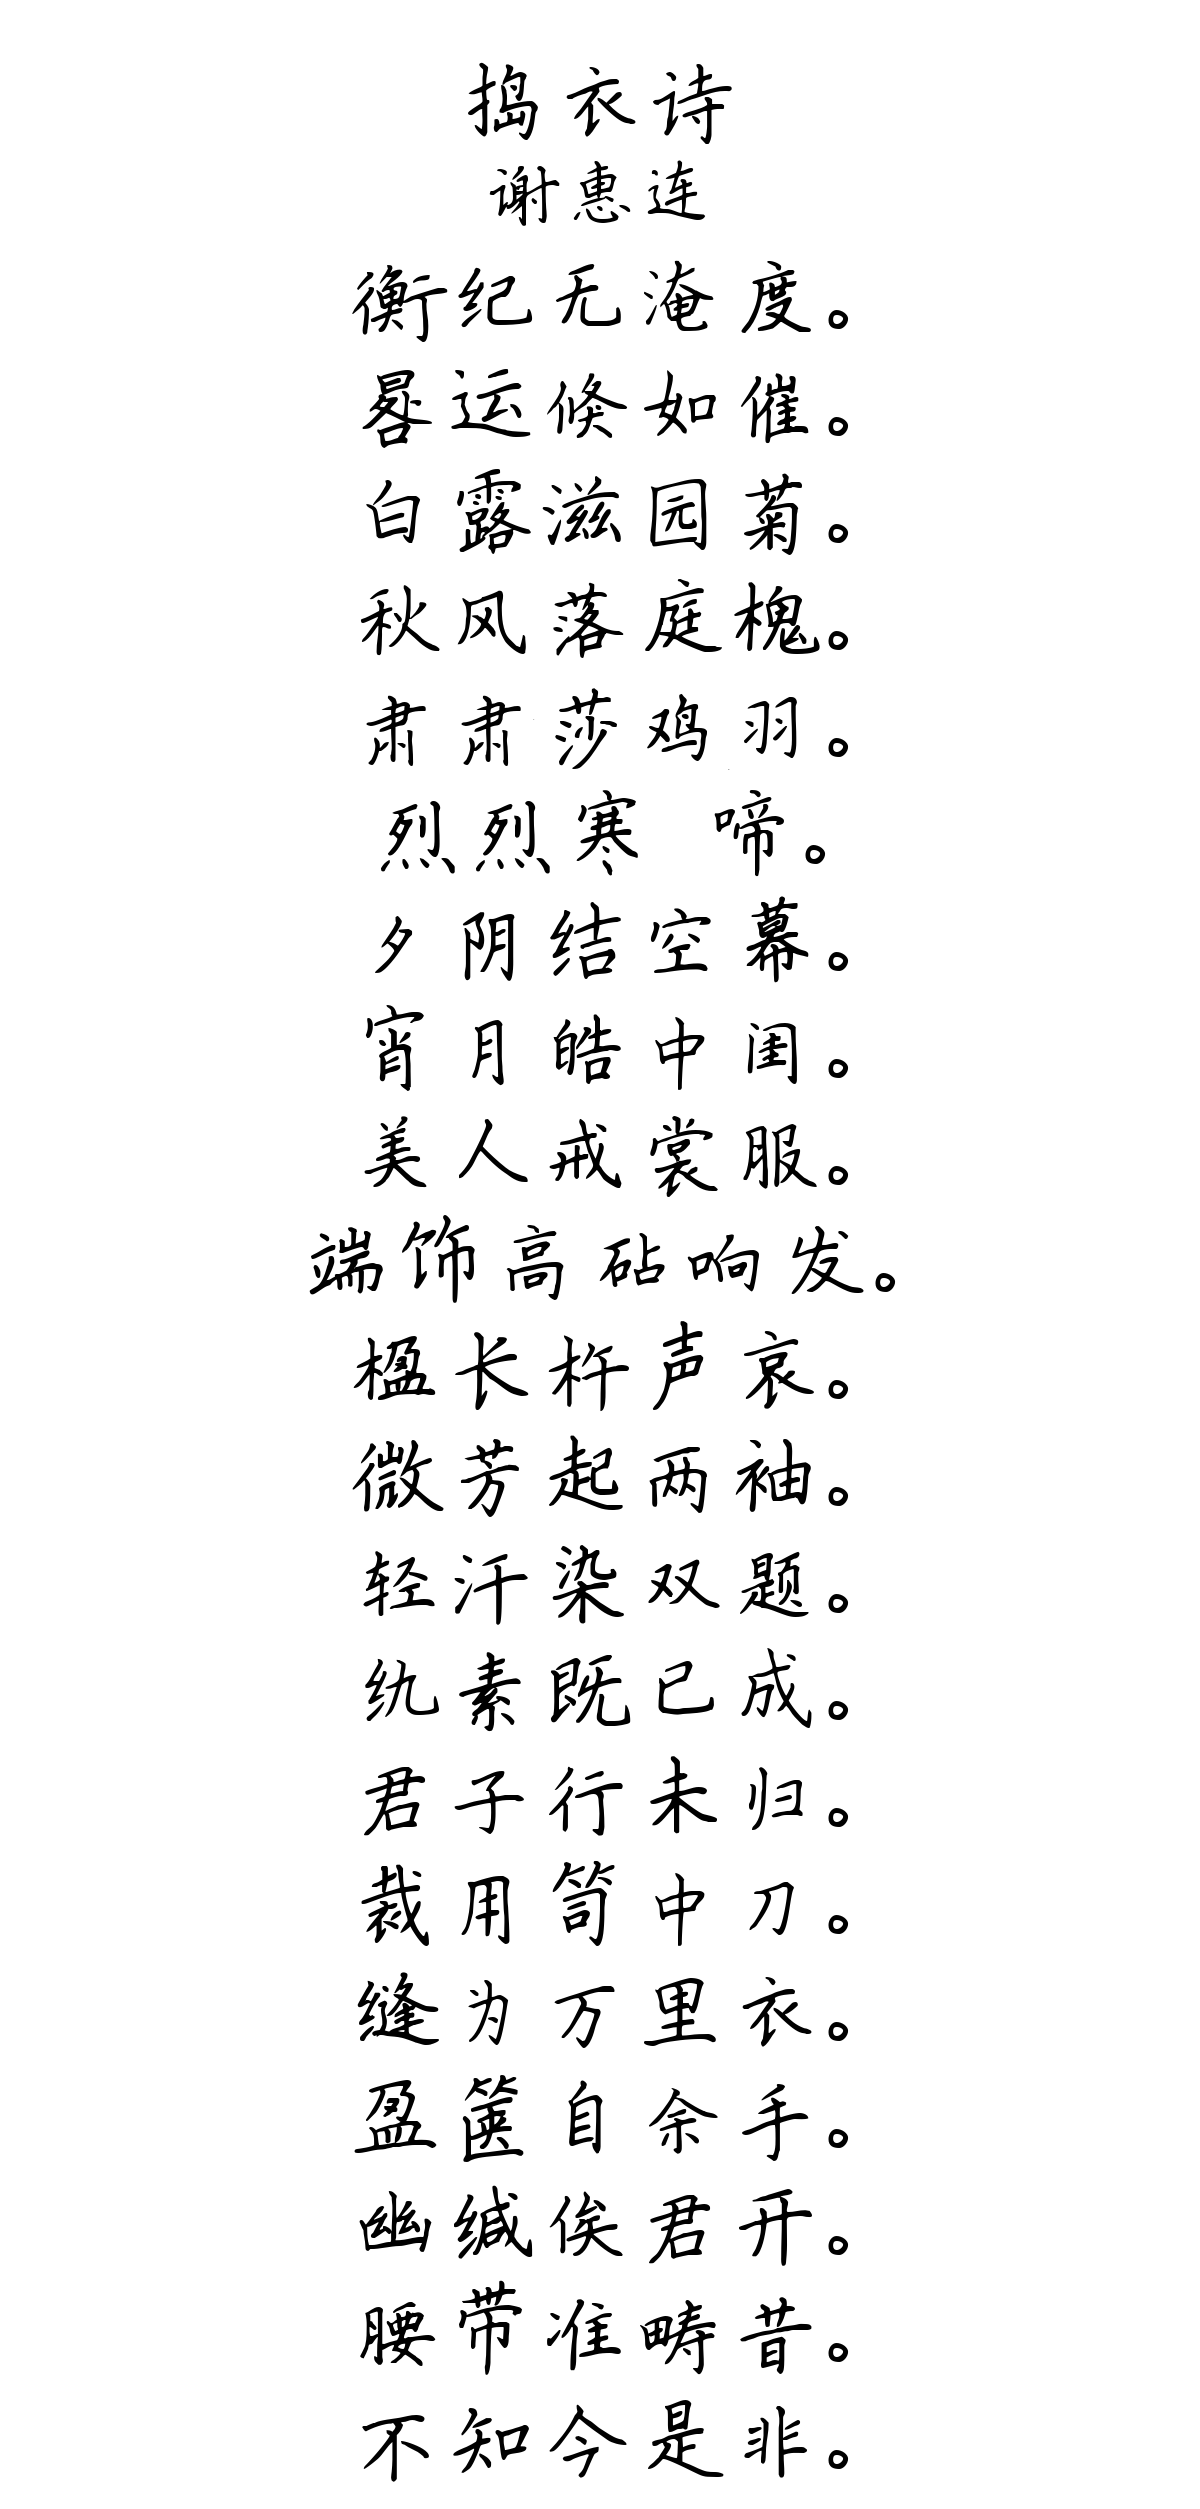 捣衣诗
谢惠连
衡纪无淹度。
晷运倏如催。
白露滋园菊。
秋风落庭槐。
肃肃莎鸡羽。
烈烈寒 啼。
夕阴结空幕。
宵月皓中闺。
美人戒裳服。
端饰高砧响发。
楹长杵声哀。
微芳起两袖。
轻汗染双题。
纨素既已成。
君子行未归。
裁用笥中刀。
缝为万里衣。
盈箧自余手。
幽缄俟君开。
腰带准畴昔。
不知今是非。